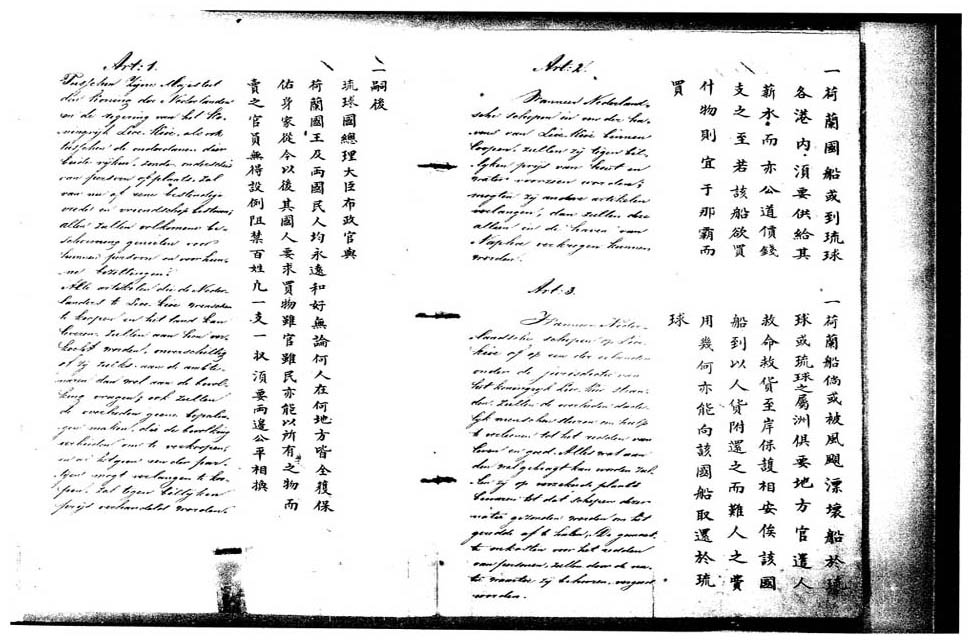 Art: 1.
Tusschen Zijne Majesteit
den Koning der Nederlanden
en de regering van het Ko-
ningrijk Lioe-Kioe, als ook
tusschen de onderdanen dier
beide rijken, zonder onderscheid
van persoon of plaats, zal
van nu af eene bestendige
vrede en vriendschap bestaan;
allen zullen volkomene be-
scherming genieten voor
hunnen persoon en voor hun-
ne bezittingen.
Alle artikelen die de Neder-
landers te Lioe-Kioe wenschen
te koopen en het land kan
leveren, zullen aan hen ver-
kocht worden, onverschillig
of zij zulks aan de ambte-
naren dan wel aan de bevol-
king vragen; ook zullen
de overheden geene bepalin-
gen maken, die de bevolking
verbieden om te verkoopen,
en al hetgeen een der par-
tijen mogt verlangen te koo-
pen, zal tegen billijken
prijs verhandeld worden.
一嗣後
琉球國總理大臣布政官與
荷蘭國王及両國民人均永遠和好無論何人在何地方皆全獲保
佑身家從今以後其國人要求買物雖官雖民亦能以所有之物而
賣之官員無得設例阻禁百姓凡一支一収須要両邊公平相換
Art: 2.
Wanneer Nederland-
sche schepen in een der ha-
vens van Lioe-Kioe binnen
loopen, zullen zij tegen bil-
lijken prijs van hout en
water voorzien worden;
mogten zij andere artikelen
verlangen, dan zullen die
alleen in de haven van
Napha verkregen kunnen
worden.
一荷蘭國船或到琉球
各港內須要供給其
薪水而亦公道價錢
支之至若該船欲買
什物則宜于那霸而
買
Art: 3.
Wanneer Neder-
landsche schepen op Lioe-
Kioe of op een der eilanden
onder de jurisdictie van
het koningrijk Lioe-Kioe stran-
den, zullen de overheden dade-
lijk menschen sturen om hulp
te verleenen tot het redden van
leven en goed. Alles wat aan
den wal gebragt kan worden zul-
len zij op verzekerde plaats
binnen tot dat schepen dezer
natie gezonden worden om het
geredde af te halen. De gemaak-
te onkosten voor het redden
van personen, zullen door de na-
tie waartoe zij behooren, vergoed
worden.
一荷蘭船倘或被風颶漂壞船於琉
球或琉球之屬洲俱要地方官遣人
救命救貨至岸保護相安俟該國
船到以人貨附還之而難人之費
用幾何亦能向該國船取還於琉
球